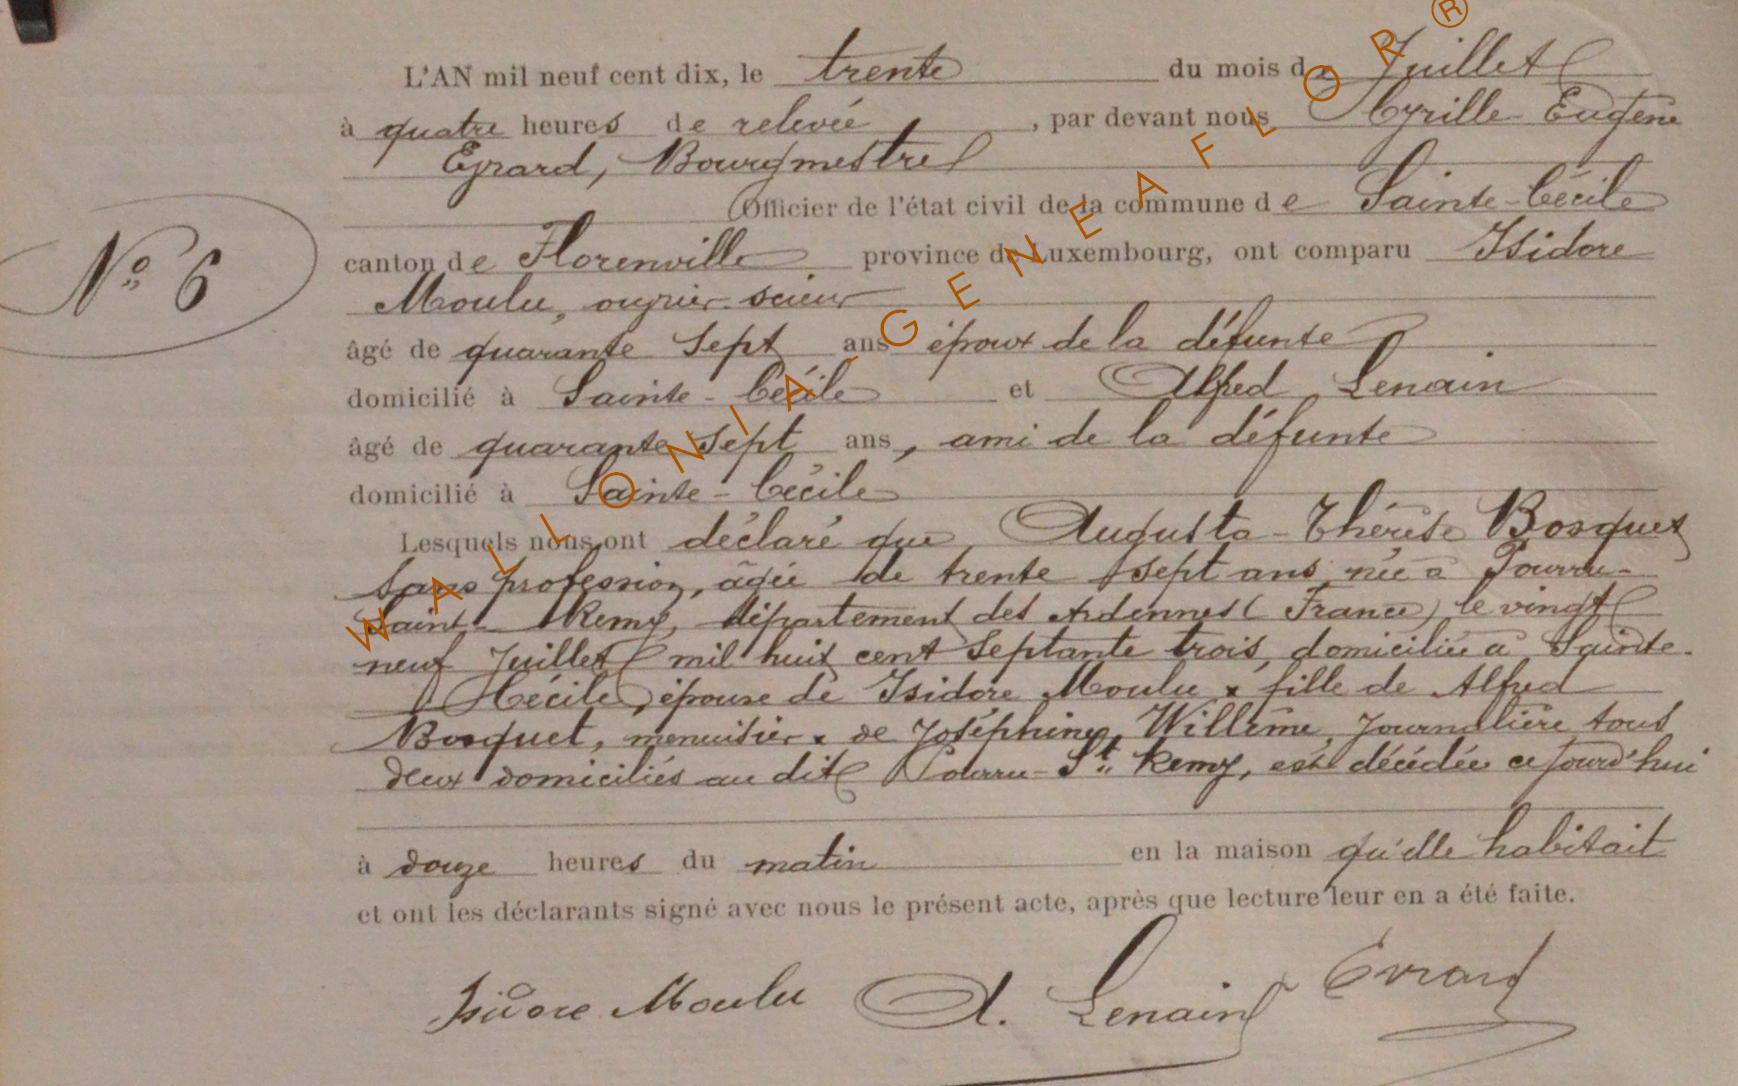 L'AN mil neuf cent dix, le trente du mois de Juillet
à quatre heures de relevée, par devant nous Cyrille Eugène
Evrard, Bourgmestre
Officier de l'état civil de la commune de Sainte-Cécile
canton de Florenville province de Luxembourg, ont comparu Isidore
N° 6
Moulu, ouvrier scieur
âgé de quarante sept ans époux de la défunte
domicilié à Sainte-Cécile et Alfred Lenain
âgé de quarante sept ans, ami de la défunte
domicilié à Sainte-Cécile
Lesquels nous ont déclaré que Augusta-Thérèse Bosquet
sans profession, âgée de trente sept ans née à Pourru-
Saint-Remy, département des Ardennes (France) le vingt
neuf Juillet mil huit cent septante trois, domiciliée à Sainte-
Cécile, épouse de Isidore Moulu x fille de Alfred
Bosquet, menuisier x de Joséphine Willème, journalière tous
deux domiciliés au dit Pourru-St Remy, est décédée ce jourd'hui
à douze heures du matin en la maison qu'elle habitait
et ont les déclarants signé avec nous le présent acte, après que lecture leur en a été faite.
Isidore Moulu A. Lenain Evrard
WALLONIA-GENEAFLOR®